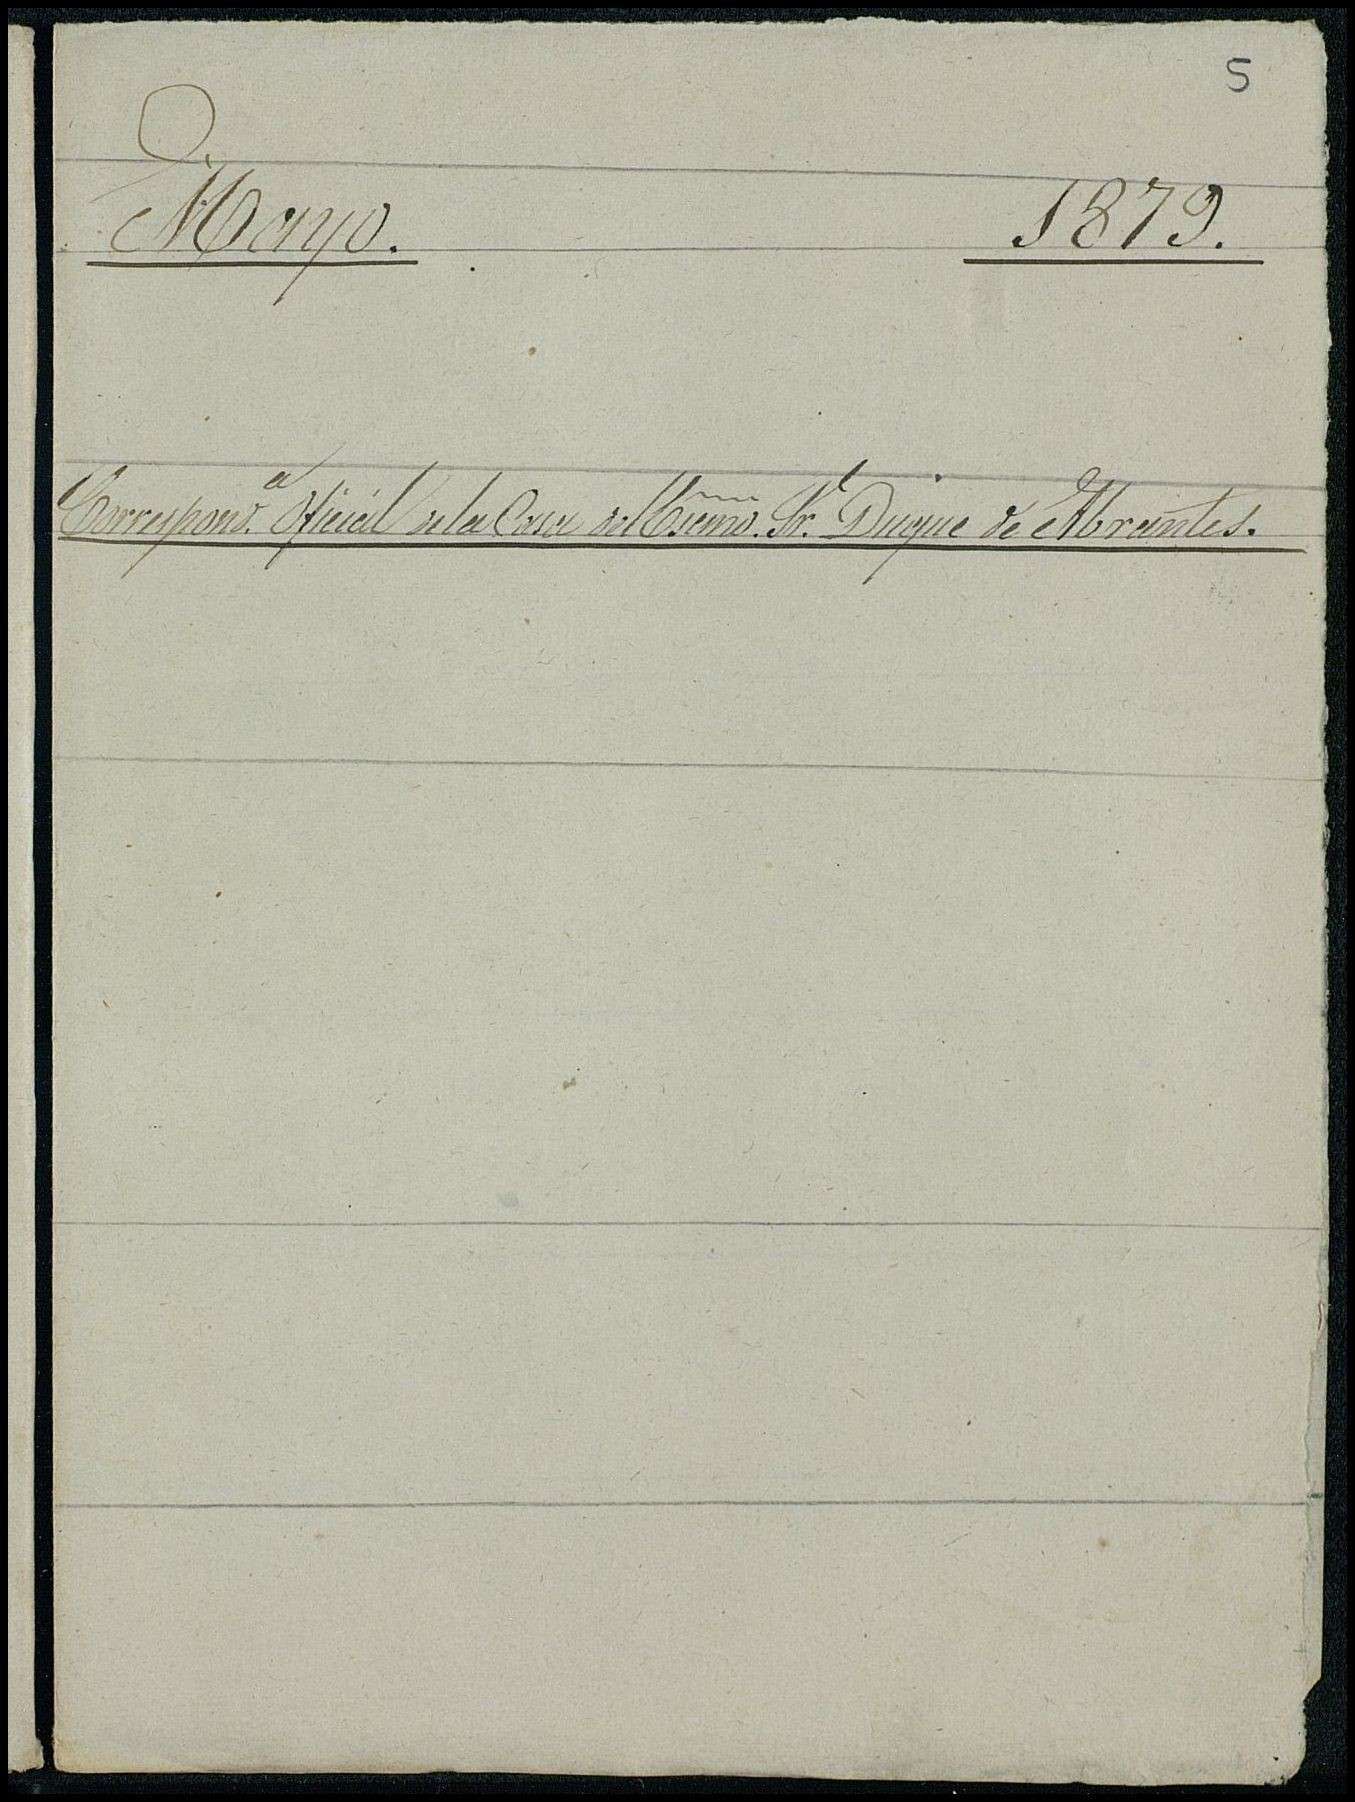 5
Mayo. 1879.
Correspond.ª Oficial de la Casa del Escmo. Sr. Duque de Abrantes.